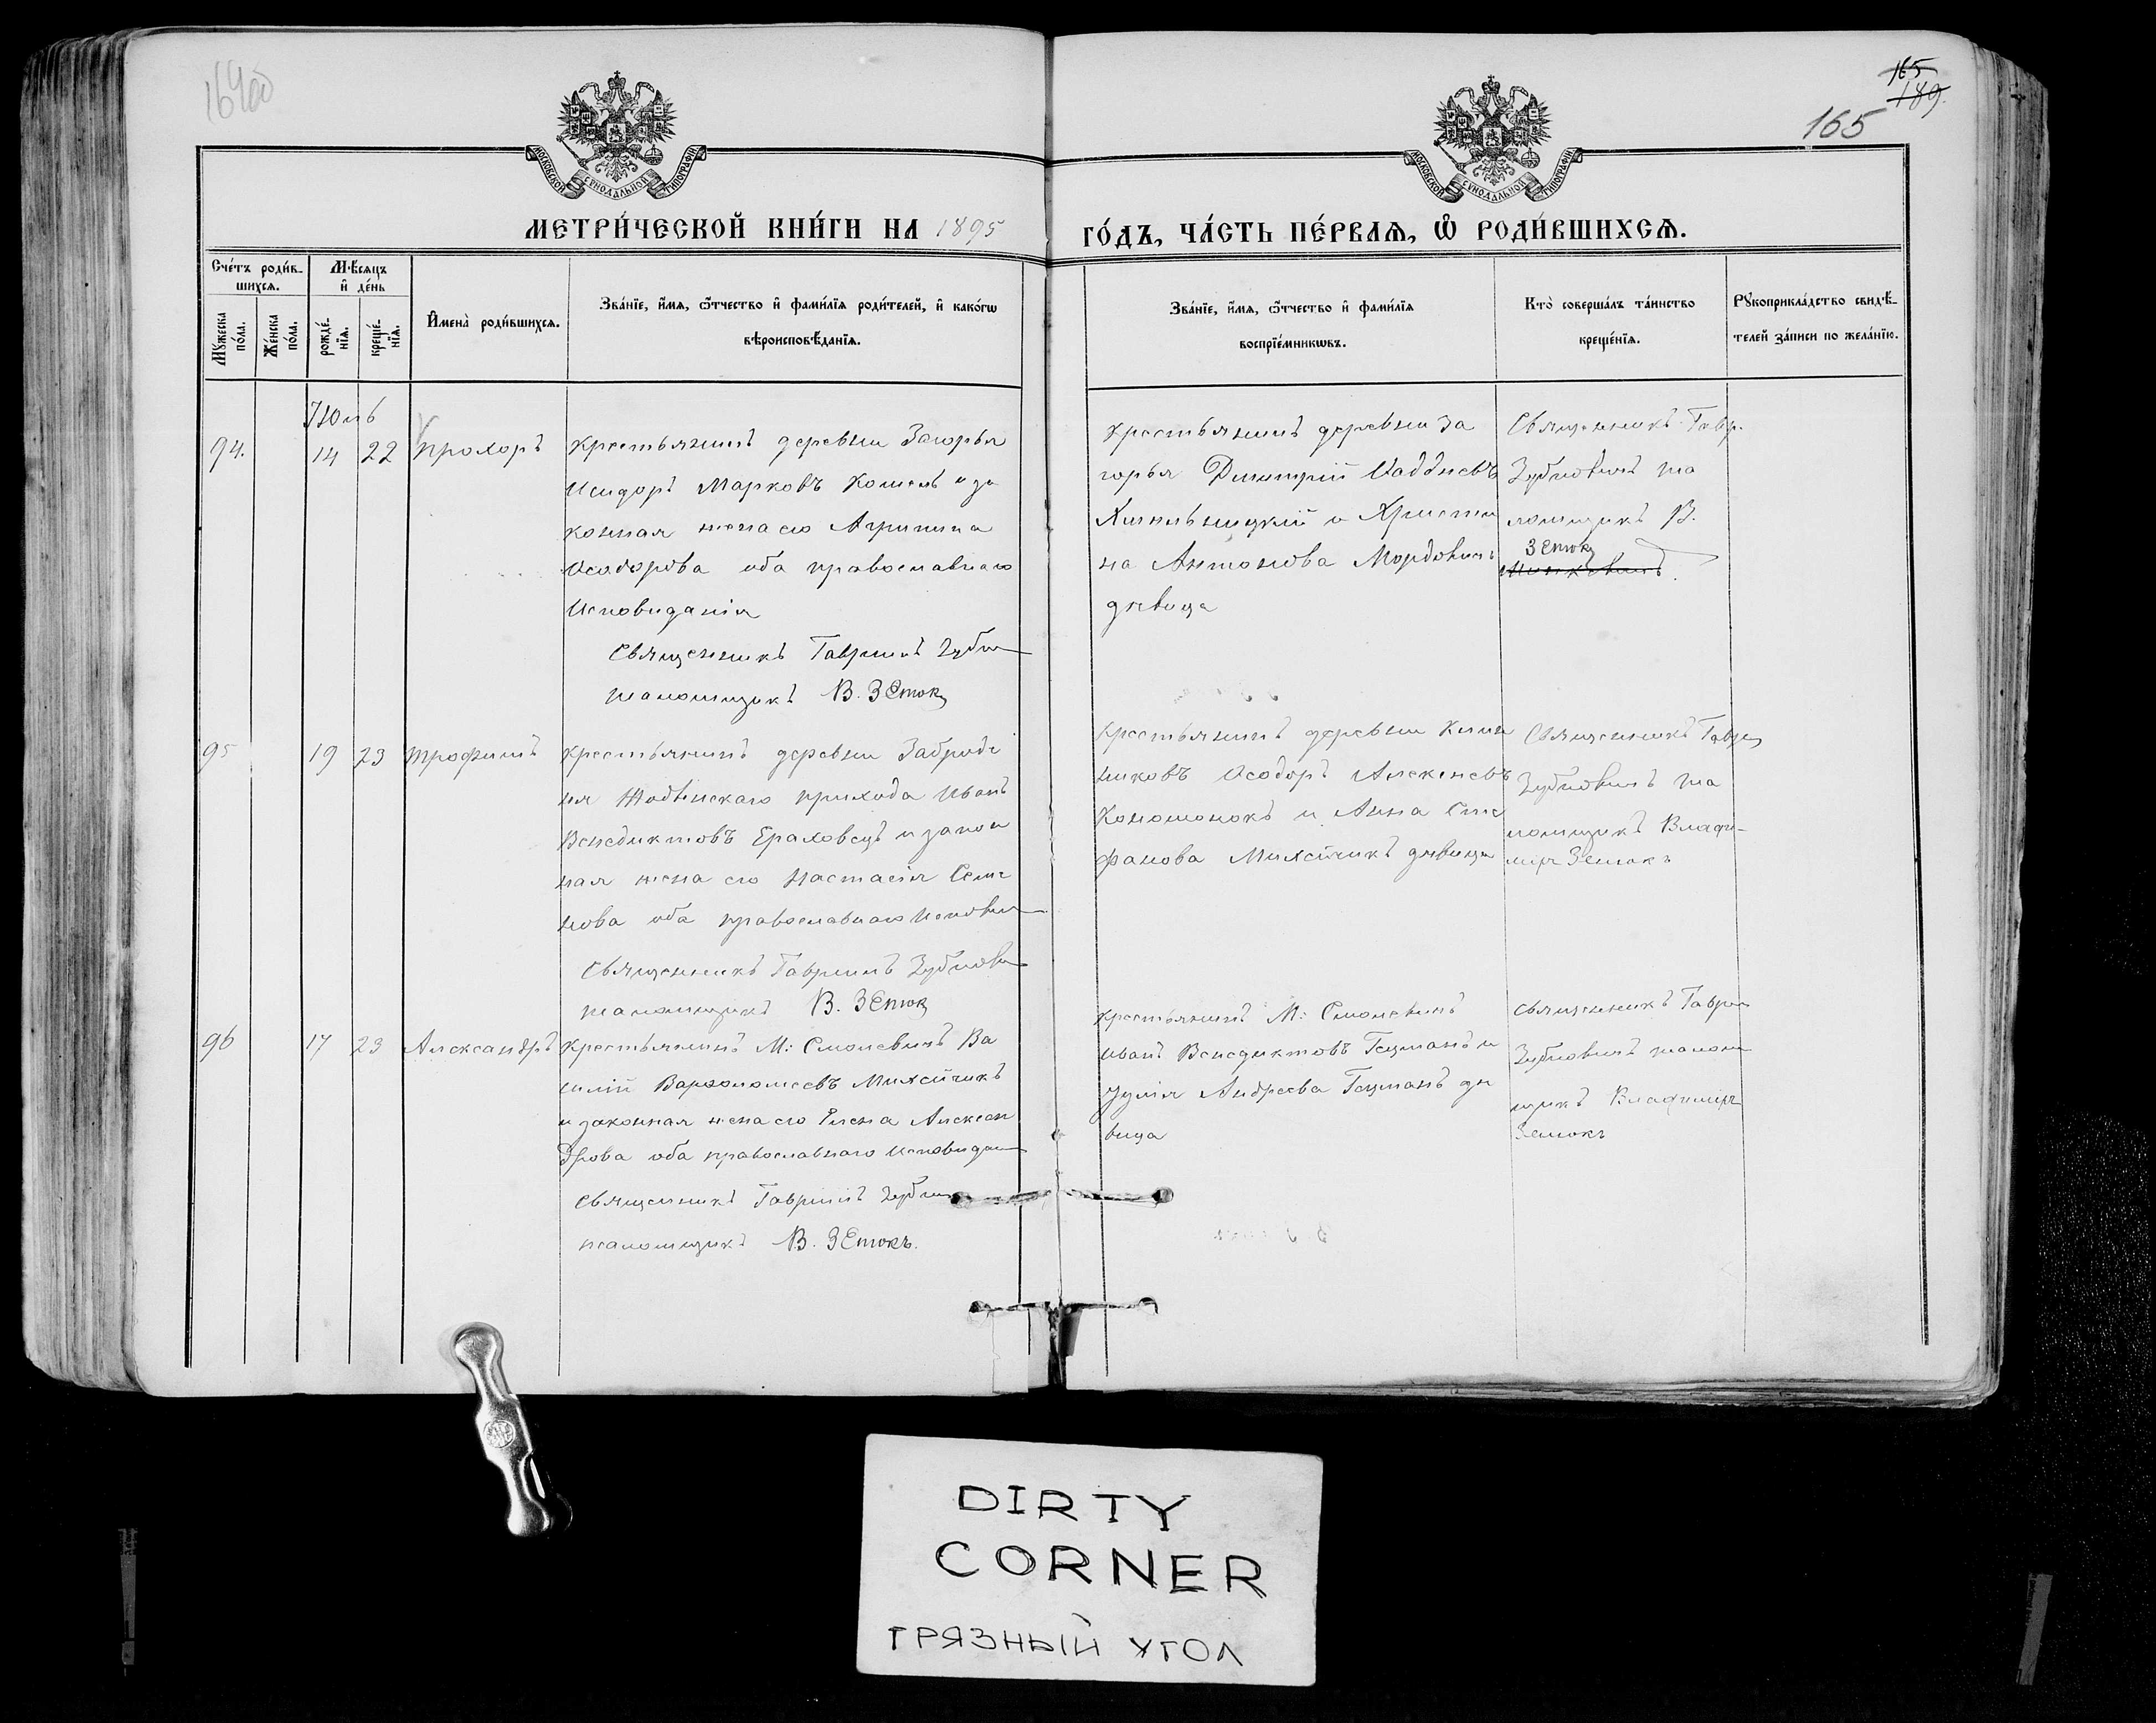 1640
165
189.
165
МОСКОВСКОЙ СѴНОДАЛЬНОЙ ТИПОГРАФІИ
МОСКОВСКОЙ СѴНОДАЛЬНОЙ ТИПОГРАФІИ
МЕТРИ́ЧЕСКОЙ КНИ́ГИ НА 1895
ГО́ДЪ, ЧА́СТЬ ПЕ́РВАѦ, Ѿ РОДИ́ВШИХСѦ.
Сче́тъ роди́в-
шихсѧ.
Мꙋ́жеска по́ла.
Же́нска по́ла.
Мѣ́сѧцъ
и҆ де́нь
рожде́-
нїѧ.
креще́-
нїѧ.
И҆мена̀ роди́вшихсѧ.
Зва́нїе, и҆́мѧ, ѻ҆́тчество и҆ фами́лїѧ роди́телей, и҆ како́гѡ
вѣроисповѣ́данїѧ.
Зва́нїе, и҆́мѧ, ѻ҆́тчество и҆ фами́лїѧ
воспрїе́мникѡвъ.
Кто̀ соверша́лъ та́инство
креще́нїѧ.
Рꙋкоприкла́дство свидѣ́-
телей за́писи по жела́нїю.
Июль
94.
14
22
Прохоръ
Крестьянинъ деревни Загорья
Исидоръ Марковъ и за
конная жена его Агрипина
Ѳеодорова оба православнаго
Исповиданія
Священникъ Гавріилъ
псаломщикъ В. Земюк
Крестьянинъ деревни За
горья Дмитрій Ѳаддѣевъ
Хмильницкій и Христи
на Антонова Мордовичъ
дѣвица
Священникъ Гавр.
Зубковичъ пса
ломщикъ В.
Земюк
95
19
23
Трофимъ
Крестьянинъ деревни Заброд
ья Жодинскаго прихода Иванъ
Венедиктовъ Ераховецъ и закон
ная жена его Настасія Семе
нова оба православнаго Исповид
Священникъ Гавріилъ Зубкови
псаломщикъ В. Земюк
Крестьянинъ деревни
никовъ Ѳеодоръ Алексѣевъ
Кономонокъ и Анна Сте
фанова Михейчикъ дѣвица
Священникъ Гавріи
Зубковичъ пса
ломщикъ Влади-
миръ Земюкъ
96
17
23
Александръ
Крестьянинъ М: Смолевичъ Ва
силій Варфоломеевъ Михейчикъ
и законная жена его Елена Алексан
дрова оба православнаго Исповидан
Священникъ Гавріилъ
псаломщикъ В. Земюкъ.
Крестьянинъ М: Смолевичъ
Иванъ Венедиктовъ Гецманъ и
Юлія Андреева Гецманъ дѣ
вица
Священникъ Гаврии
Зубковичъ псалом
щикъ Владиміръ
Земюкъ
DIRTY
CORNER
ГРЯЗНЫЙ УГОЛ